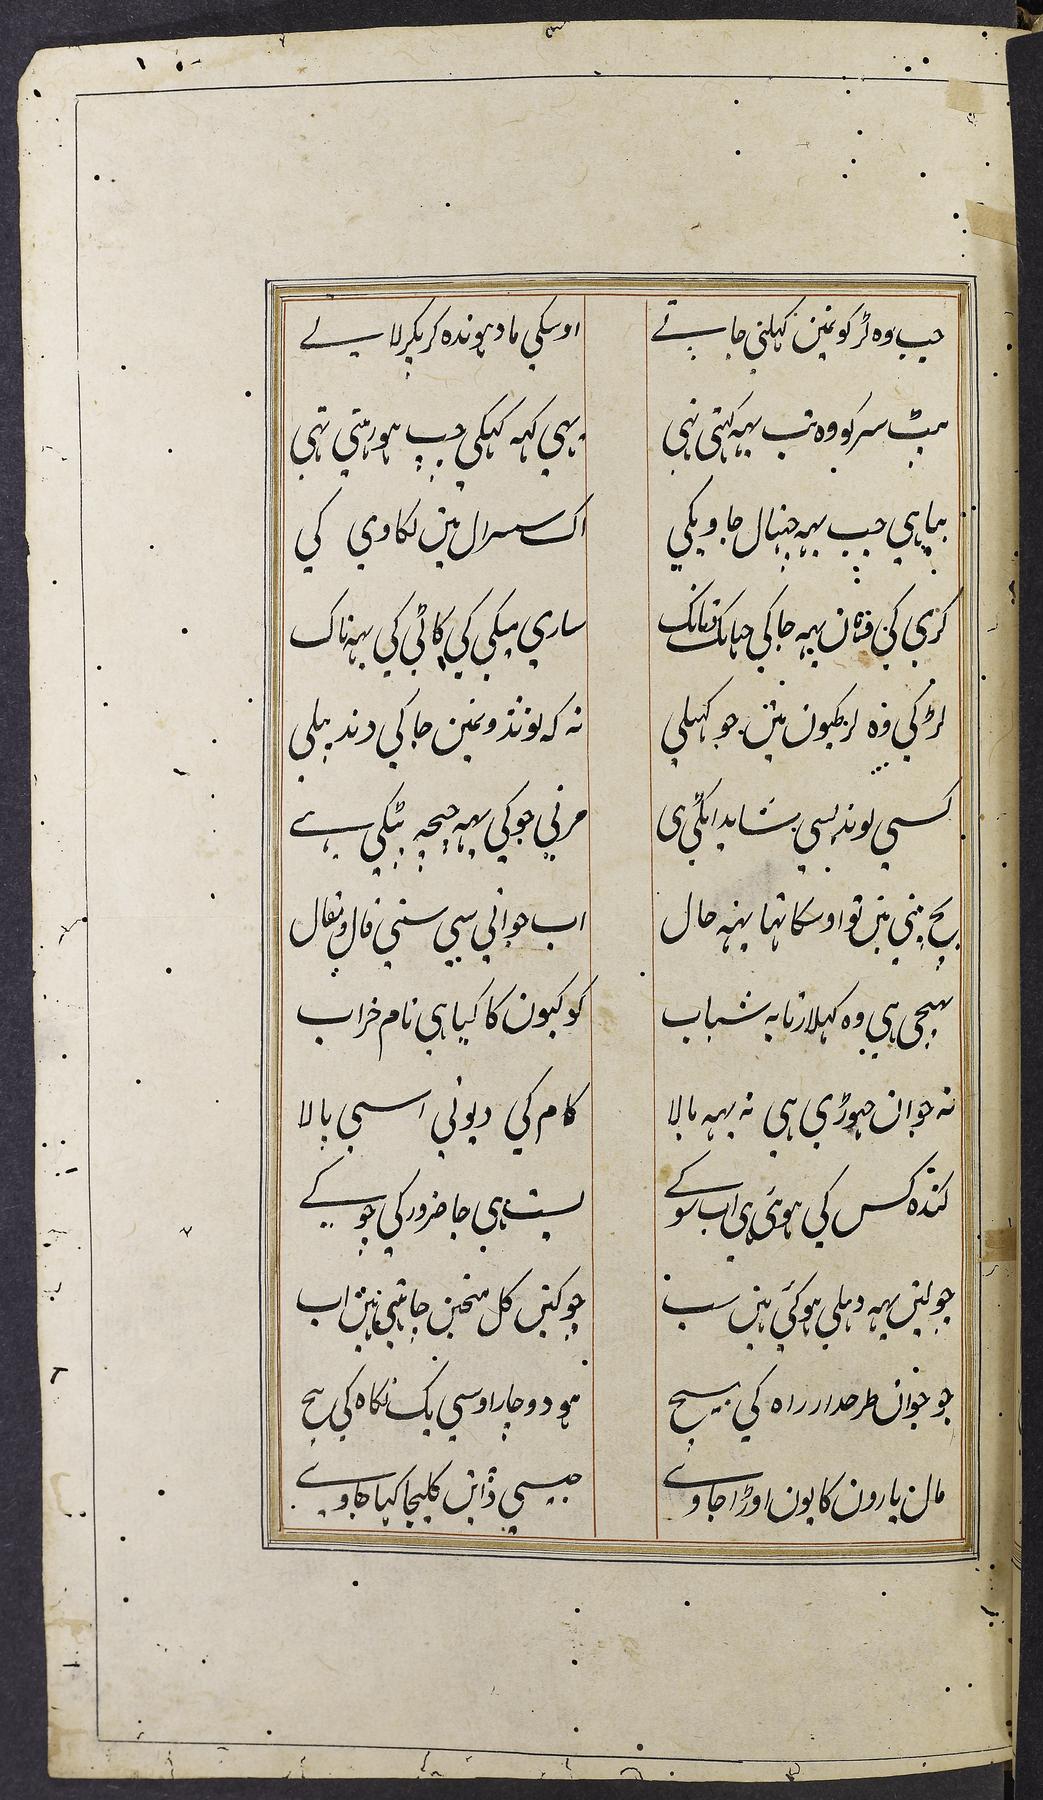 جب وہ لڑکونمین کہلنی جاتے
اوسکی مادہوندہ کر پکڑلاسے
پیٹ سر کو وہ تب یہہ کہتی تہی
یہی کہہ کہکی جب ہورہتی تہی
بیاہی جب یہہ چنپال جاویکی
اک سسرال مین لکاوی کی
کری کی فتان یہہ جاکی
ساری میکی کی کاٹی کی یہہ ناک
لڑکی وہ لڑکیون مین جو کہیلی
نہ کہ لونڈونمین جاکی دند پیلی
کسی لوندیسی شاید اٹکی ہی
مرنی جوکی یہہ ہے
بچپنی مین تو اوسکا تہا یہہ حال
اب جوانی سی سنی قال و مقال
پہچی ہی وہ کہلارتا بہ شباب
کو کیون کا کیا ہی نام خراب
نہ جوان چہوڑی ہی نہ یہہ بالا
کام کی دیونی اسی پالا
کندہ کس کی ہوئی ہی اب سوکے
ست ہی جا ضرور کی چوکے
چولین یہہ دہلی ہوکئی ہین سب
چوکتین کل جاتی ہین اب
جو جوان طرحدار راہ کی بیچ
ہو دوچار اوسی یک نکاہ کی بیچ
مال یارون کا یون اوڑا جاوے
جیسی ڈائن کلیجا کہا جاوے